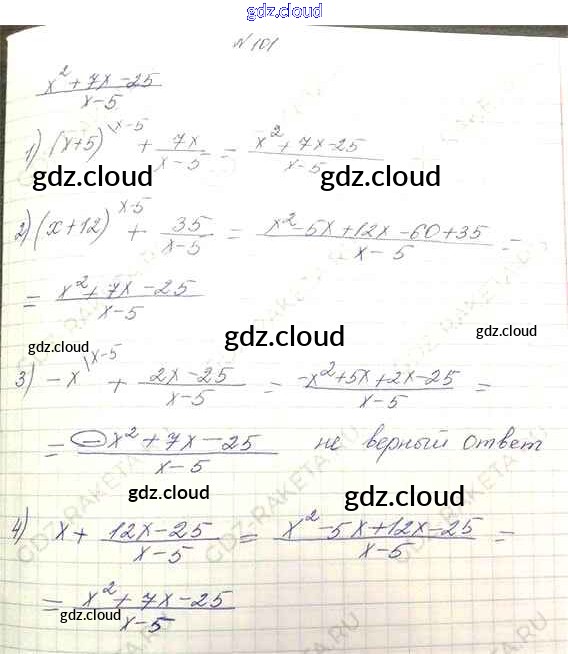 gdz.cloud
N 101
x² + 7x - 25 / x - 5
1) (x+5)^\x-5 + 7x / x - 5 = x² + 7x - 25 / x - 5
gdz.cloud gdz.cloud
2) (x+12)^x-5 + 35 / x-5 = x² - 5x + 12x - 60 + 35 / x - 5 =
= x² + 7x - 25 / x - 5
gdz.cloud
gdz.cloud gdz.cloud
3) -x^\x-5 + 2x - 25 / x - 5 = -x² + 5x + 2x - 25 / x - 5 =
= -x² + 7x - 25 / x - 5 не верный ответ
gdz.cloud gdz.cloud
4) x + 12x - 25 / x - 5 = x² - 5x + 12x - 25 / x - 5 =
= x² + 7x - 25 / x - 5
gdz.cloud gdz.cloud
GDZ-RAKETA.RU